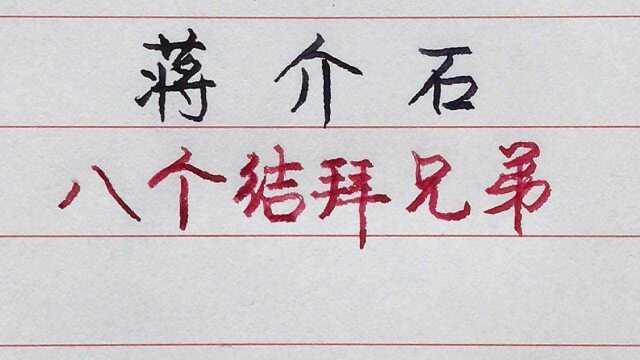 蒋介石
八个结拜兄弟